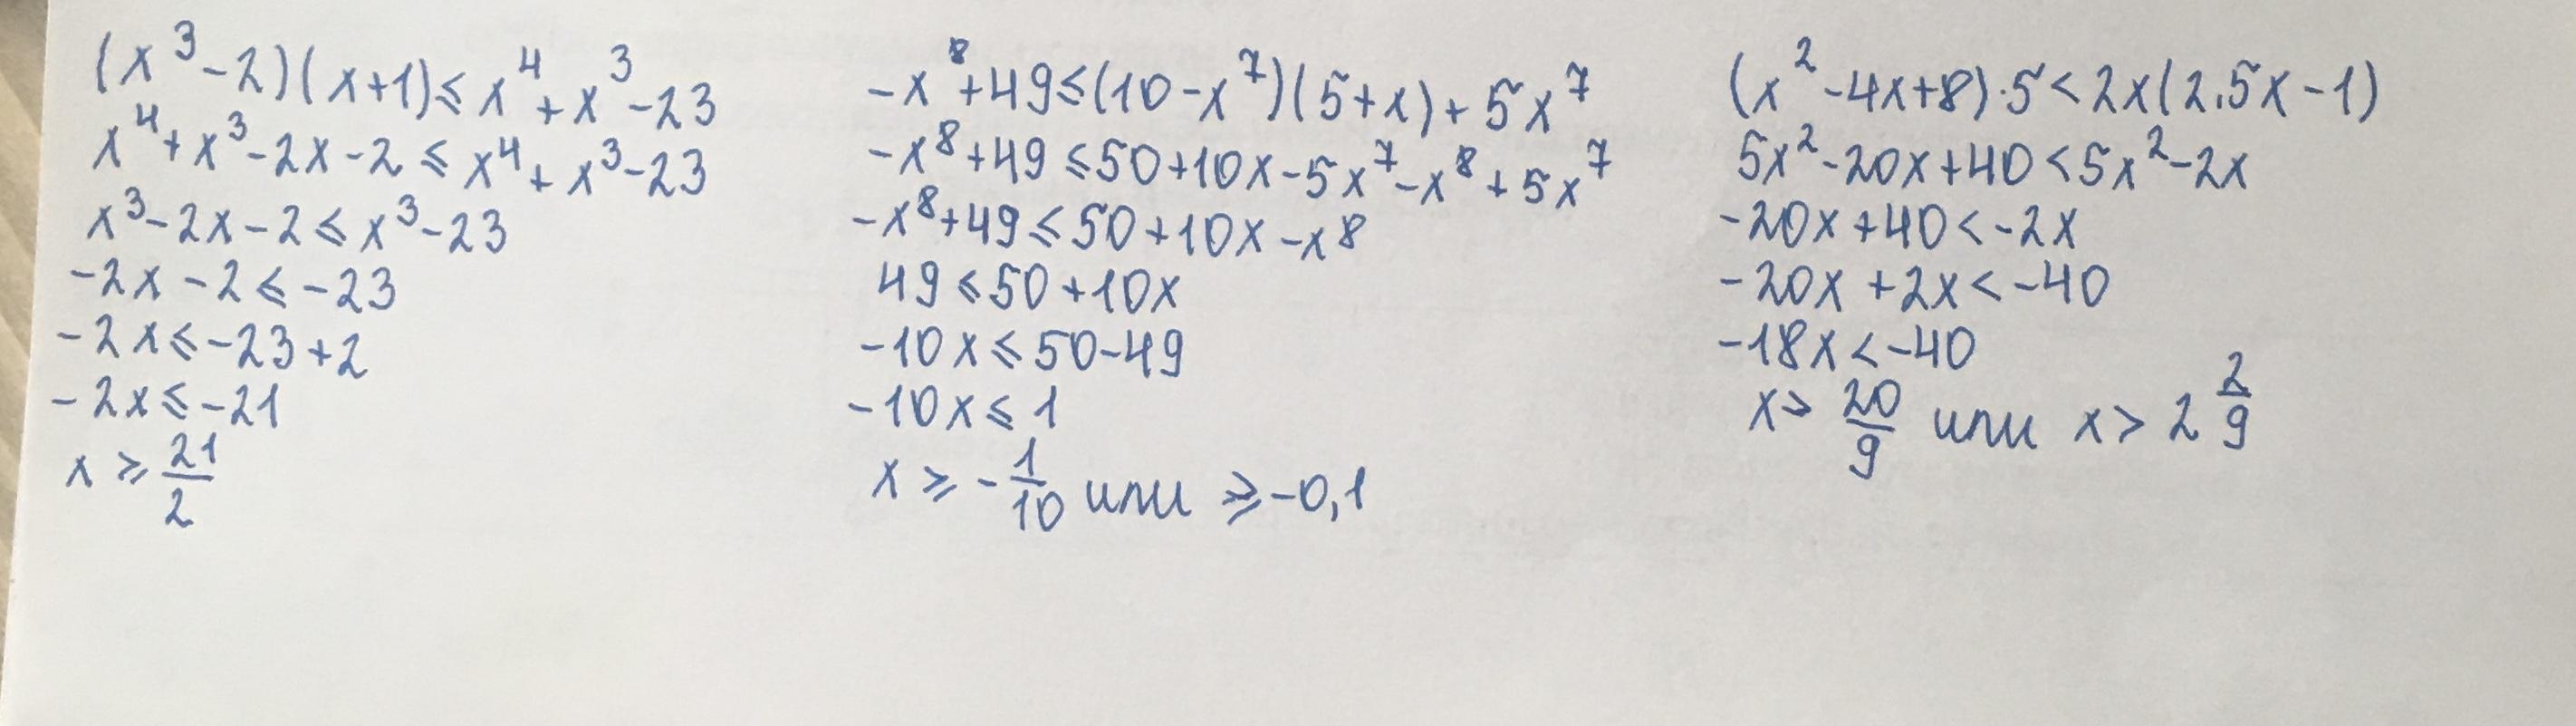 (x³-2)(x+1)≤x⁴+x³-23
x⁴+x³-2x-2≤x⁴+x³-23
x³-2x-2≤x³-23
-2x-2≤-23
-2x≤-23+2
-2x≤-21
x≥21/2
-x⁸+49≤(10-x⁷)(5+x)+5x⁷
-x⁸+49≤50+10x-5x⁷-x⁸+5x⁷
-x⁸+49≤50+10x-x⁸
49≤50+10x
-10x≤50-49
-10x≤1
x≥-1/10 или ≥-0,1
(x²-4x+8)·5<2x(2.5x-1)
5x²-20x+40<5x²-2x
-20x+40<-2x
-20x+2x<-40
-18x<-40
x>20/9 или x>2 2/9